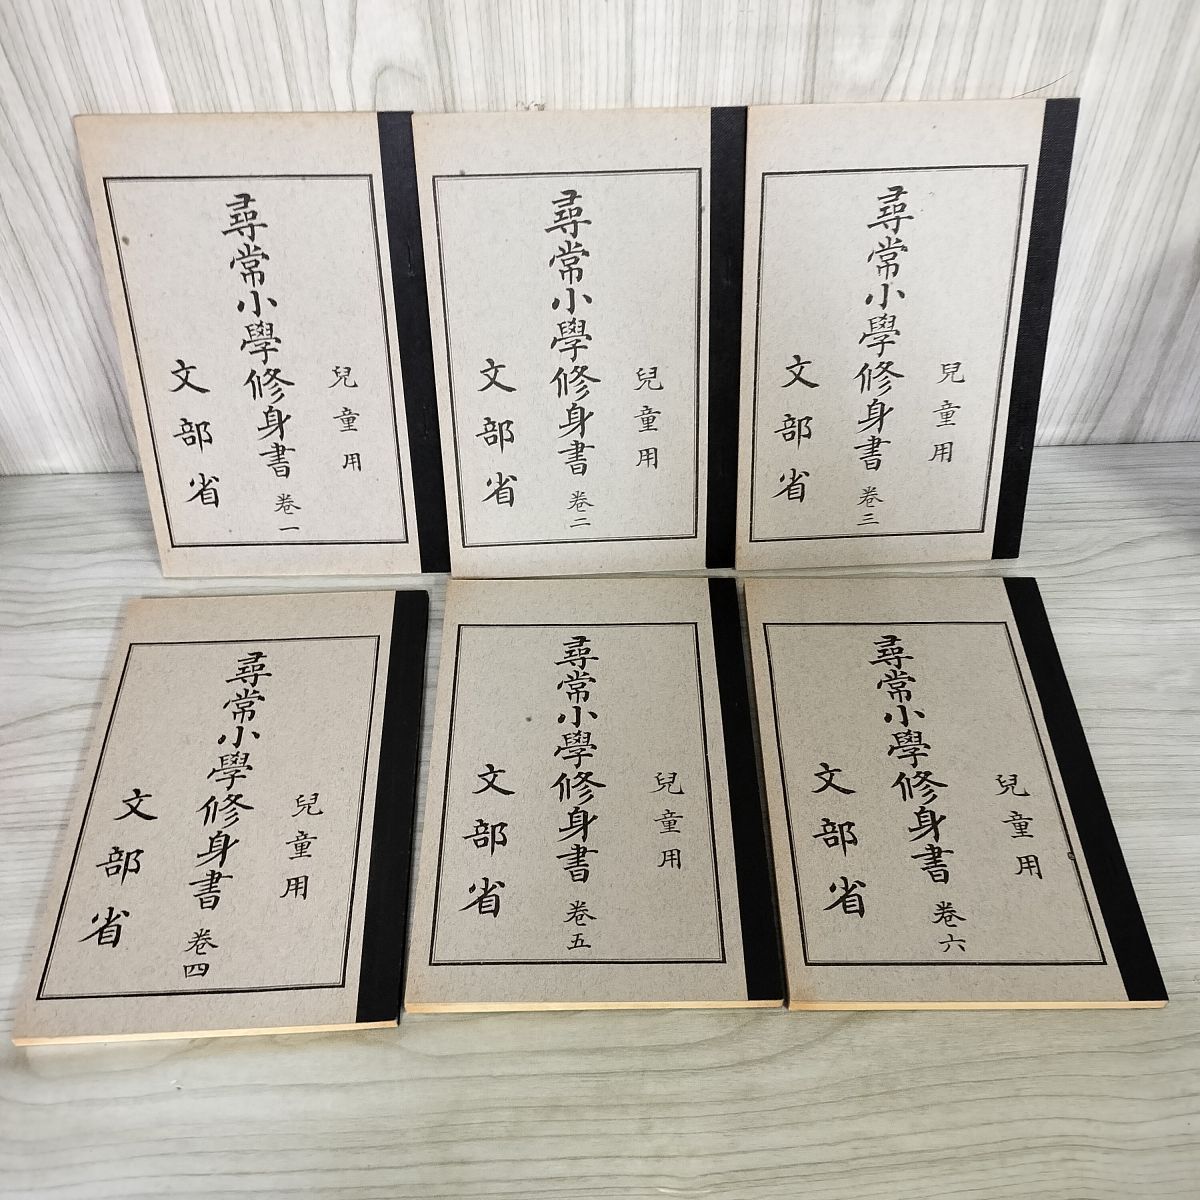 兒童用
尋常小學修身書 卷一
文部省
兒童用
尋常小學修身書 卷二
文部省
兒童用
尋常小學修身書 卷三
文部省
兒童用
尋常小學修身書 卷四
文部省
兒童用
尋常小學修身書 卷五
文部省
兒童用
尋常小學修身書 卷六
文部省